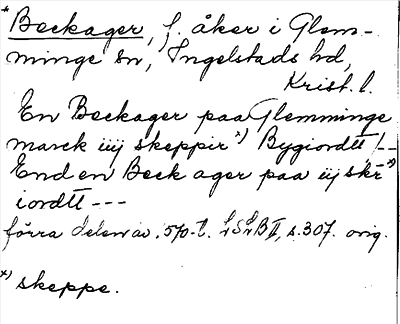 * Beckager, f. åker i Glem-
minge sn, Ingelstads hd,
Krist. l.
En Beckager paa Glemminge
marck iiij skeppir x) Bygiordtt /--
End en Beck ager paa iij skr x)
iordtt ---
förra delen av 1570-t. LSLB II, s. 307. orig.
x) skeppe.